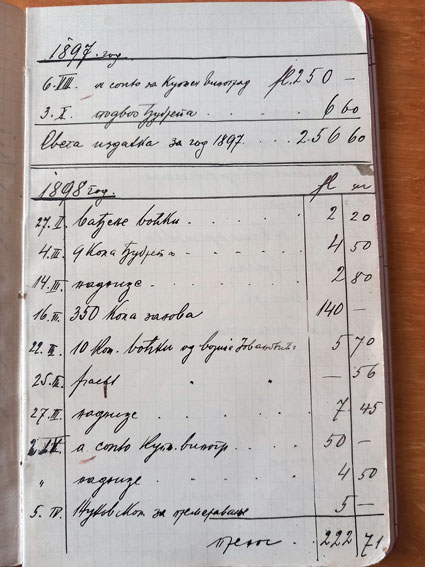 1897. год.
6. VIII. a conto за Купљен виноград fl. 250 —
3. X. подвоз ђубрета . . . . . 6 60
Свега издатка за год 1897. . . . 256 60
1898 год. fl
27. II. вађење воћки . . . . . 2 20
4. III. 9 Кола ђубрета . . . 4 50
14. III. надницe . . . . . 2 80
16. III. 350 Кола . . . . 140 —
22. III. 10 Ком. воћки од 5 70
25. III. " " — 56
27. III. надницe . . . . 7 45
2. IV. a conto Куп. виногр. . . 50 —
" надницe . . . . 4 50
5. IV. за премеравање 5 —
пренос . . 222 71